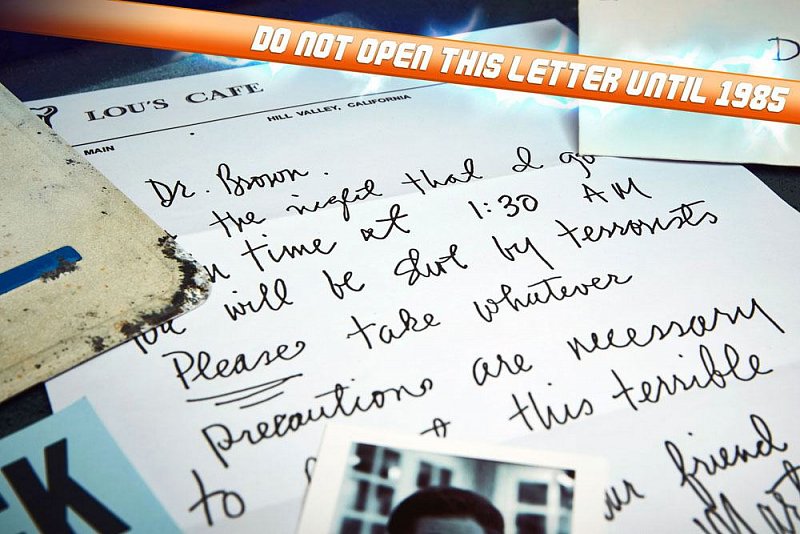 DO NOT OPEN THIS LETTER UNTIL 1985
LOU'S CAFE
HILL VALLEY, CALIFORNIA
MAIN
Dr. Brown.
the night that I go
time at 1:30 AM
will be shot by terrorists
Please take whatever
precautions are necessary
to this terrible
friend